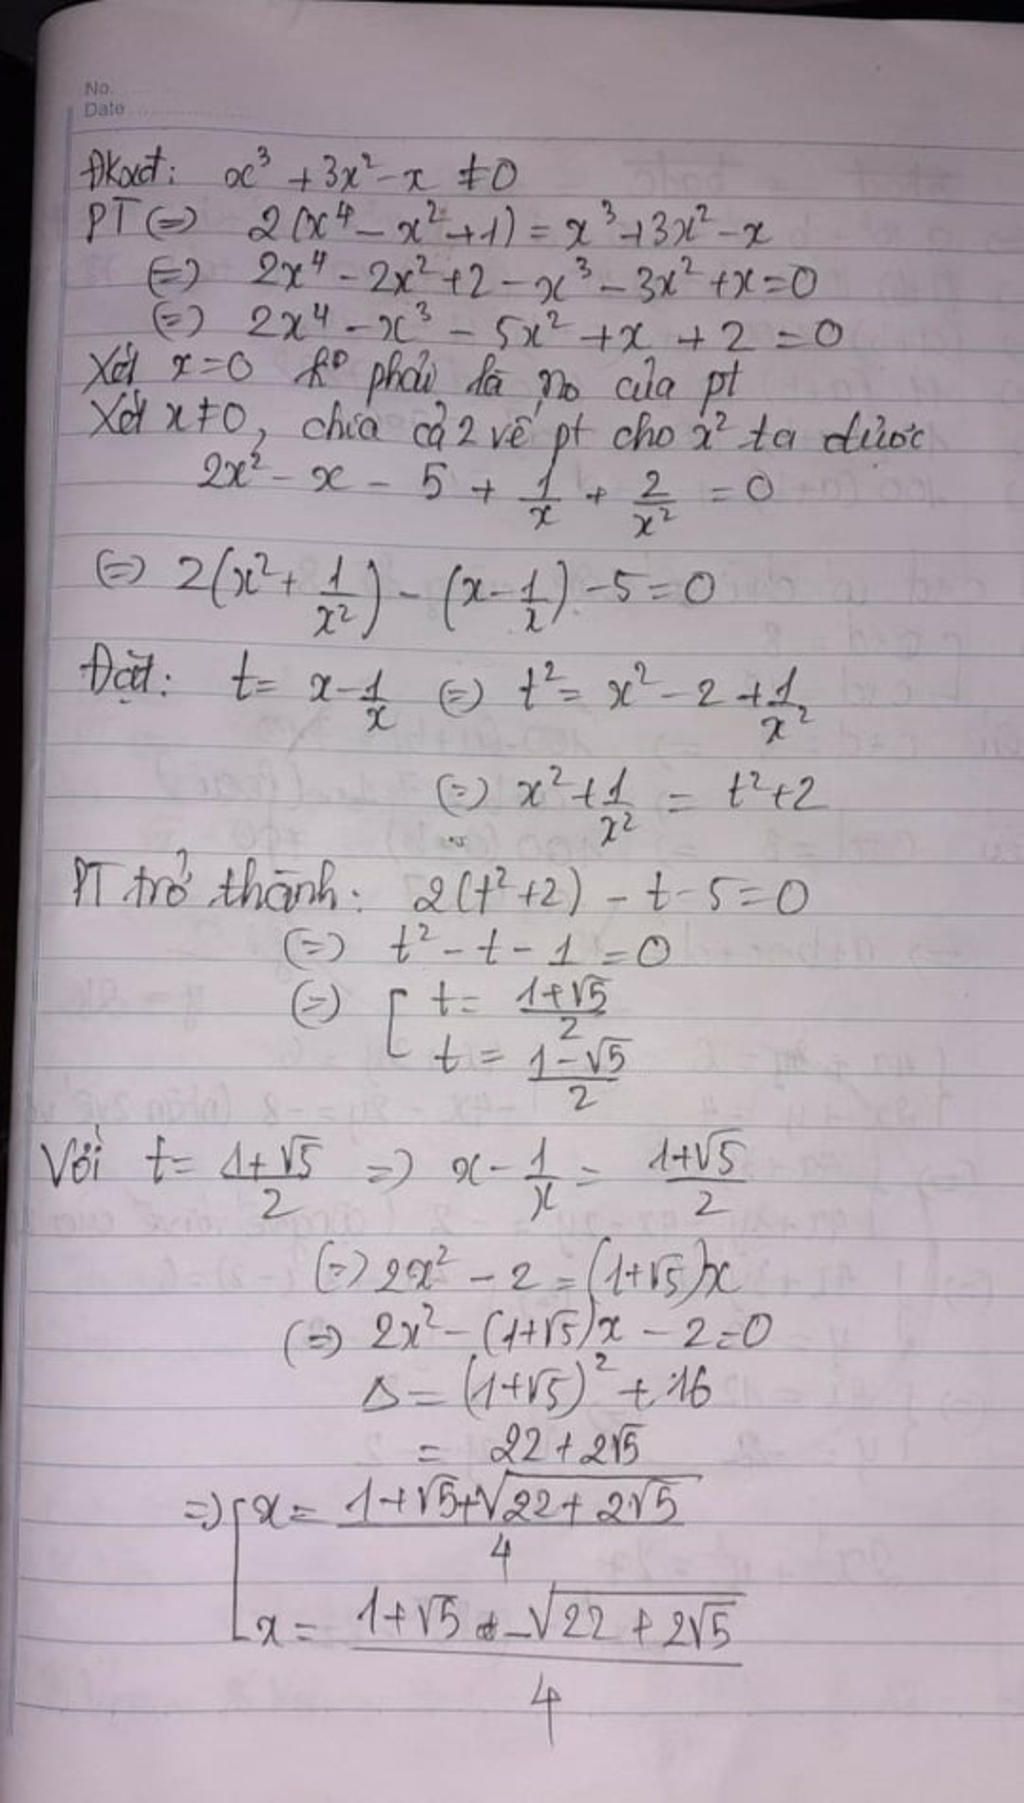 No.
Date
Đkxđ: x³ + 3x² - x ≠ 0
PT (=) 2(x⁴ - x² + 1) = x³ + 3x² - x
(=) 2x⁴ - 2x² + 2 - x³ - 3x² + x = 0
(=) 2x⁴ - x³ - 5x² + x + 2 = 0
Xét x = 0 k⁰ phải là no của pt
Xét x ≠ 0, chia cả 2 vế pt cho x² ta được
2x² - x - 5 + 1/x + 2/x² = 0
(=) 2(x² + 1/x²) - (x - 1/x) - 5 = 0
Đặt: t = x - 1/x (=) t² = x² - 2 + 1/x²
(=) x² + 1/x² = t² + 2
PT trở thành: 2(t² + 2) - t - 5 = 0
(=) t² - t - 1 = 0
(=) [ t = (1+√5)/2
t = (1-√5)/2
Với t = (1+√5)/2 =) x - 1/x = (1+√5)/2
(=) 2x² - 2 = (1+√5)x
(=) 2x² - (1+√5)x - 2 = 0
Δ = (1+√5)² + 16
= 22 + 2√5
=) [ x = (1+√5+√(22+2√5))/4
x = (1+√5 - √(22+2√5))/4